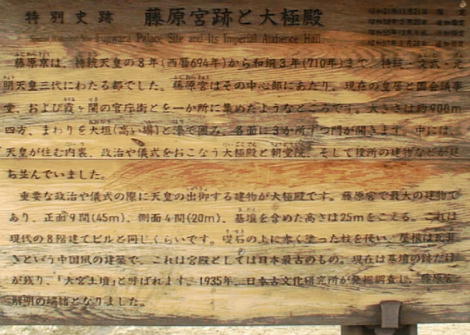 特別史跡 藤原宮跡と大極殿
Fujiwara Palace Site and Its Imperial Audience Hall
藤原京は、持統天皇の8年(西暦694年)から和銅3年(710年)まで、持統・文武・元
明天皇三代にわたる都でした。藤原宮はその中心部にあたり、現在の皇居と国会議事
堂、および霞ヶ関の官庁街とを一か所に集めたようなところです。大きさは約900m
四方、まわりを大垣(高い塀)と濠で囲み、各面に3か所ずつ門が開きます。中には、
天皇が住む内裏、政治や儀式をおこなう大極殿と朝堂院、そして役所の建物などが建
ち並んでいました。
重要な政治や儀式の際に天皇の出御する建物が大極殿です。藤原宮で最大の建物で
あり、正面9間(45m)、側面4間(20m)、基壇を含めた高さは25mをこえる。これは
現代の8階建てビルと同じくらいです。礎石の上に赤く塗った柱を使い、屋根は瓦ぶ
きという中国風の建築で、これは宮殿としては日本最古のもの。現在は基壇の跡だけ
が残り、「大宮土壇」と呼ばれます。1935年、日本古文化研究所が発掘調査し、藤原宮
解明の端緒となりました。